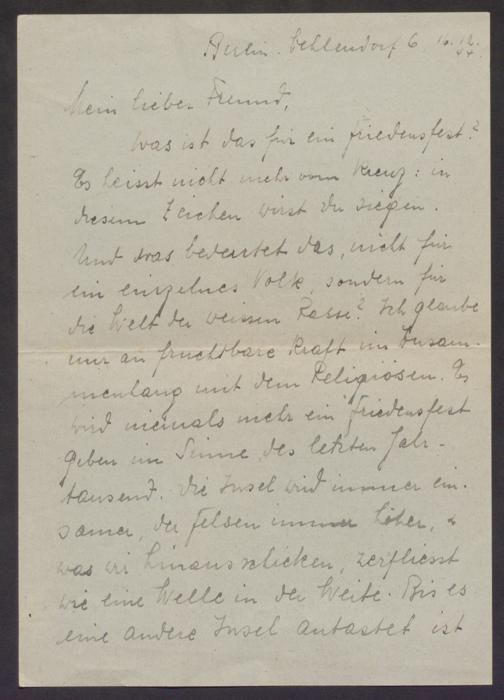 Berlin-Zehlendorf 6. 16. 12.
Mein lieber Freund,
Was ist das für ein Friedensfest?
Es heisst nicht mehr vom Kreuz: in
diesem Zeichen wirst du siegen.
Und was bedeutet das, nicht für
ein einzelnes Volk, sondern für
die Welt der weissen Rasse? Ich glaube
nur an fruchtbare Kraft im Zusam-
menhang mit dem Religiösen. Es
wird niemals mehr ein Friedensfest
geben im Sinne des letzten Jahr-
tausend. Die Insel wird immer ein-
samer, der Felsen immer höher, &
was wir hinausschicken, zerfliesst
wie eine Welle in der Weite. Bis es
eine andere Insel antastet ist